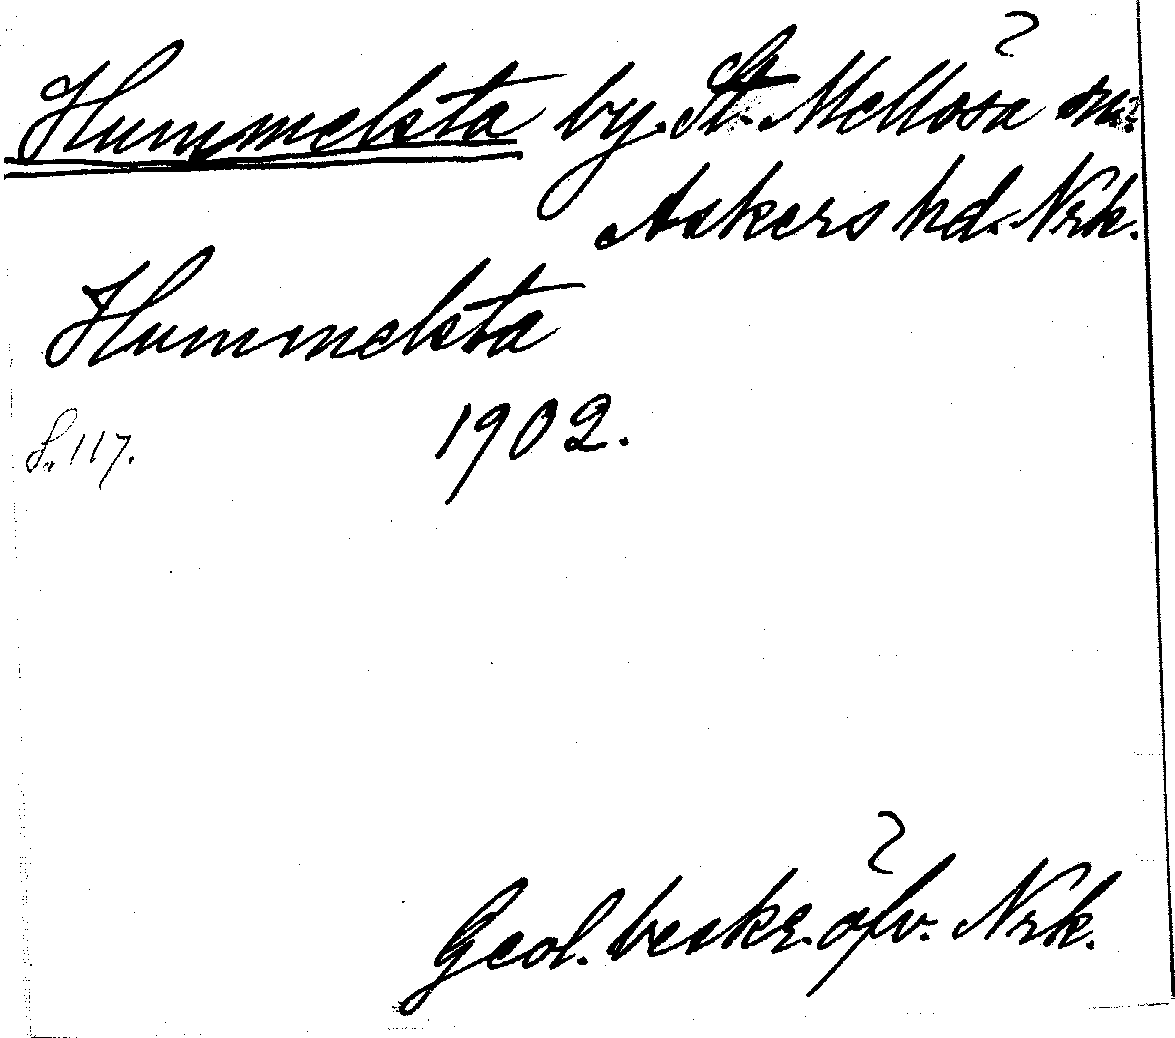 Hummelsta by. St. Mellösa sn.
Askers hd. Nrk.
Hummelsta
1902.
S. 117.
Geol. beskr. öfv. Nrk.